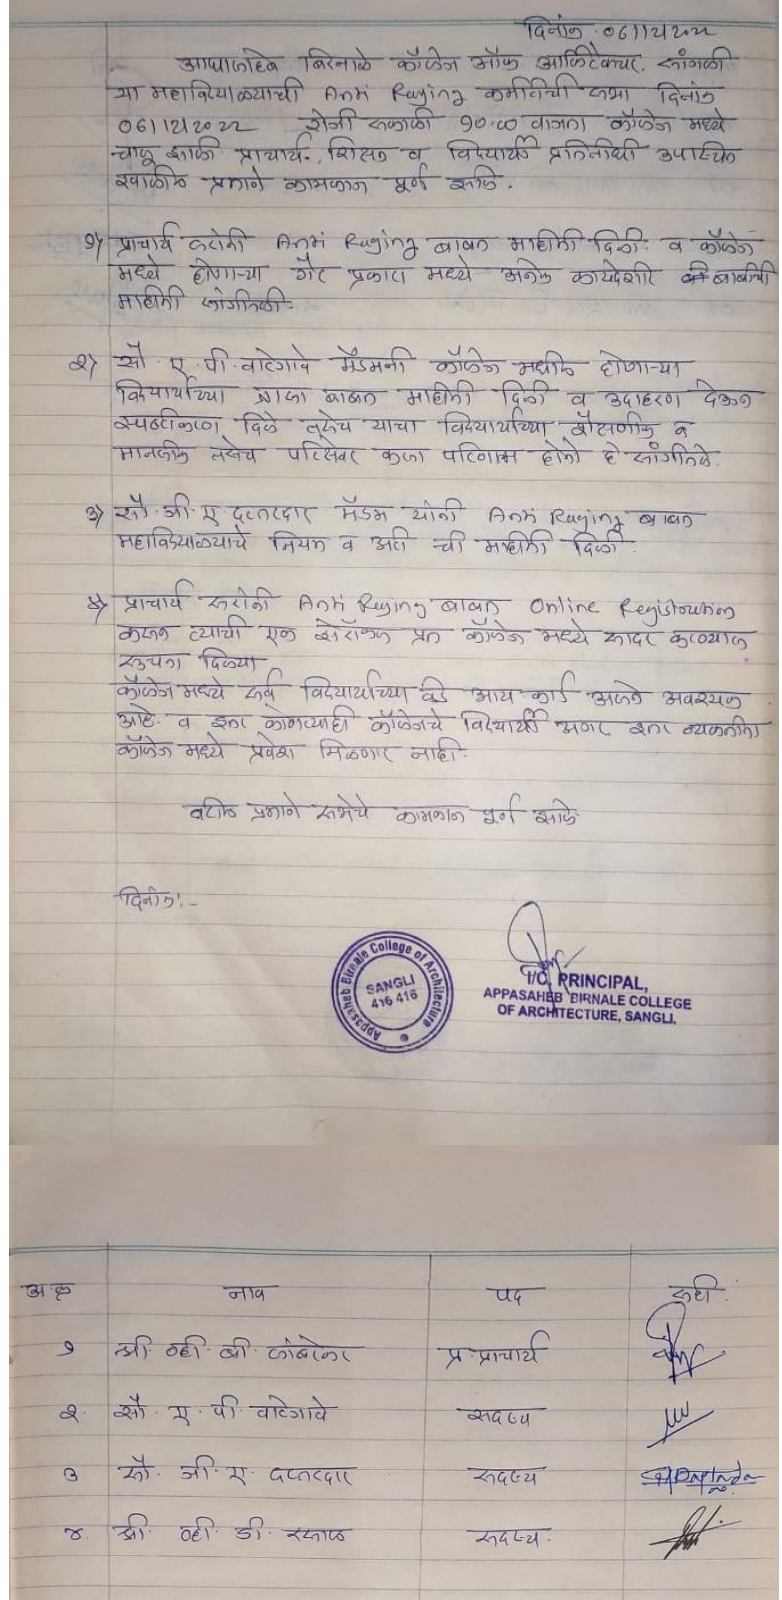 दिनांक. 06/12/2022
आप्पासाहेब बिरनाळे कॉलेज ऑफ आर्किटेक्चर. सांगली
या महाविद्यालयाची Anti Ragging कमीटीची सभा दिनांक
06/12/2022 रोजी सकाळी १०.०० वाजता कॉलेज मध्ये
चालू झाली प्राचार्य, शिक्षक व विद्यार्थी प्रतिनीधी उपस्थित
खालील प्रमाणे कामकाज पूर्ण झाले.
१) प्राचार्य सरांनी Anti Ragging बाबत माहीती दिली व कॉलेज
मध्ये होणाऱ्या गैर प्रकारा मध्ये अनेक कायदेशीर बाबींची
माहीती सांगीतली.
२) सौ. ए. पी. वाटेगावे मॅडमनी कॉलेज मधील होणाऱ्या
विद्यार्थ्यांच्या त्रासा बाबत माहीती दिली व उदाहरण देऊन
स्पष्टीकरण दिले तसेच याचा विद्यार्थ्यांच्या शैक्षणीक व
मानसीक तसेच परिसेवर कसा परिणाम होतो हे सांगीतले.
३) सौ. जी. ए. दफ्तरदार मॅडम यांनी Anti Ragging बाबत
महाविद्यालयाचे नियम व अटी ची माहीती दिली.
४) प्राचार्य सरांनी Anti Ragging बाबत Online Registration
करून त्याची एक झेरॉक्स प्रत कॉलेज मध्ये सादर करण्यास
सुचना दिल्या
कॉलेज मध्ये सर्व विद्यार्थ्यांच्या कडे आय कार्ड असणे अवश्यक
आहे. व इतर कोणत्याही कॉलेजचे विद्यार्थी अगर इतर व्यक्तींना
कॉलेज मध्ये प्रवेश मिळणार नाही.
वरील प्रमाणे सभेचे कामकाज पूर्ण झाले.
दिनांक:-
Appasaheb Birnale College of Architecture
SANGLI
416 416
I/C. PRINCIPAL,
APPASAHEB BIRNALE COLLEGE
OF ARCHITECTURE, SANGLI.
अ.क्र नाव पद सही.
१ श्री. व्ही. बी. कांबळेकर प्र. प्राचार्य
२. सौ. ए. पी. वाटेगावे सदस्य
३ सौ. जी. ए. दफ्तरदार सदस्य
४. श्री. व्ही. डी. सदस्य.